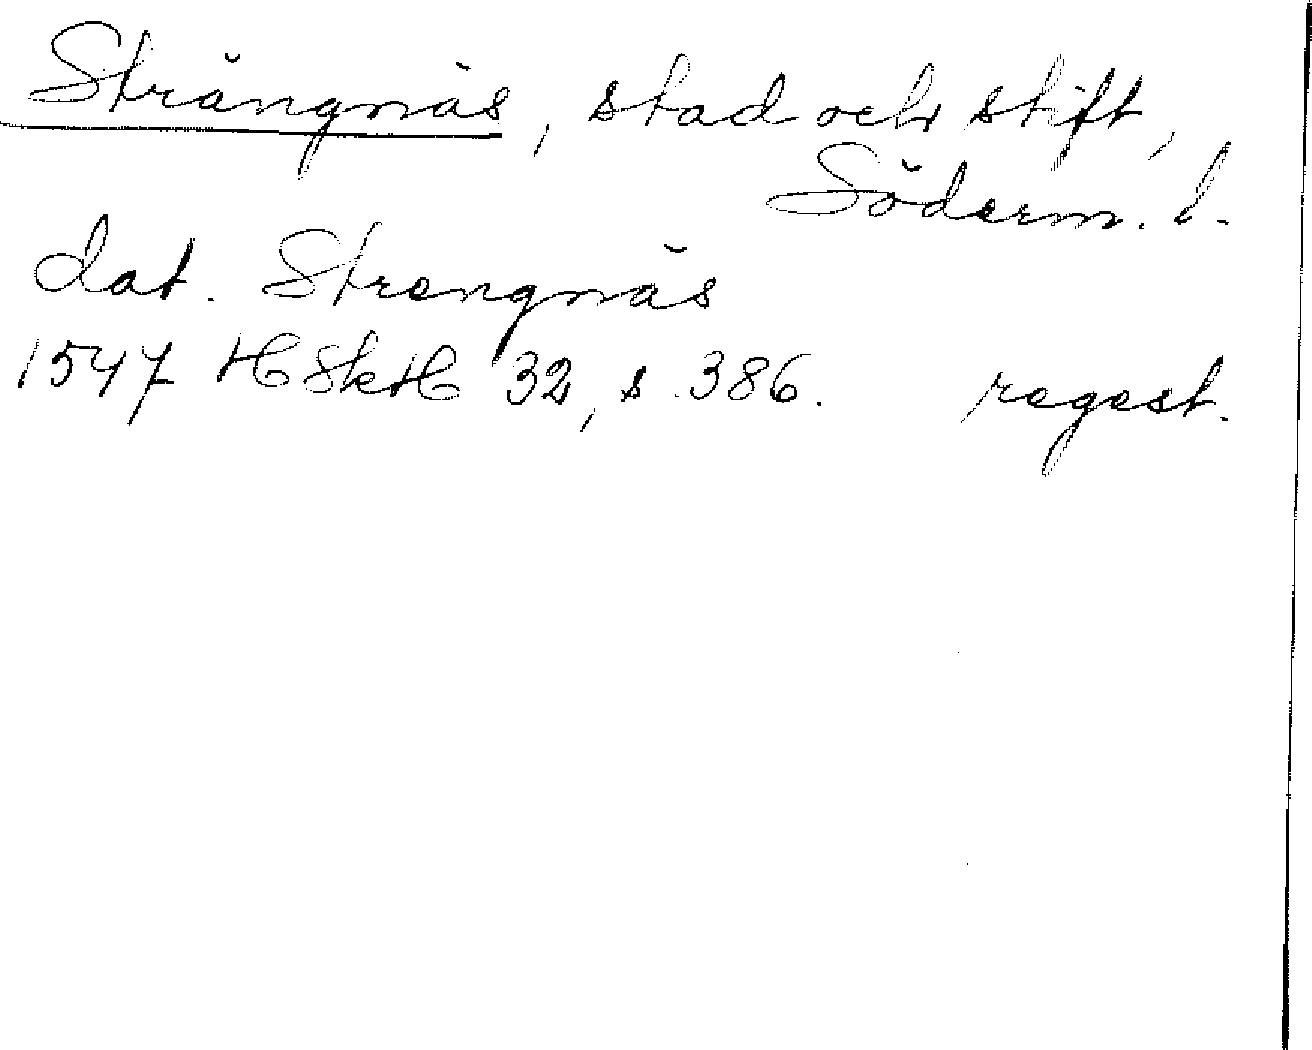 Strängnäs, stad och stift,
Söderm. l.
dat. Strengnäs
1547 HSkH 32, s. 386. regest.